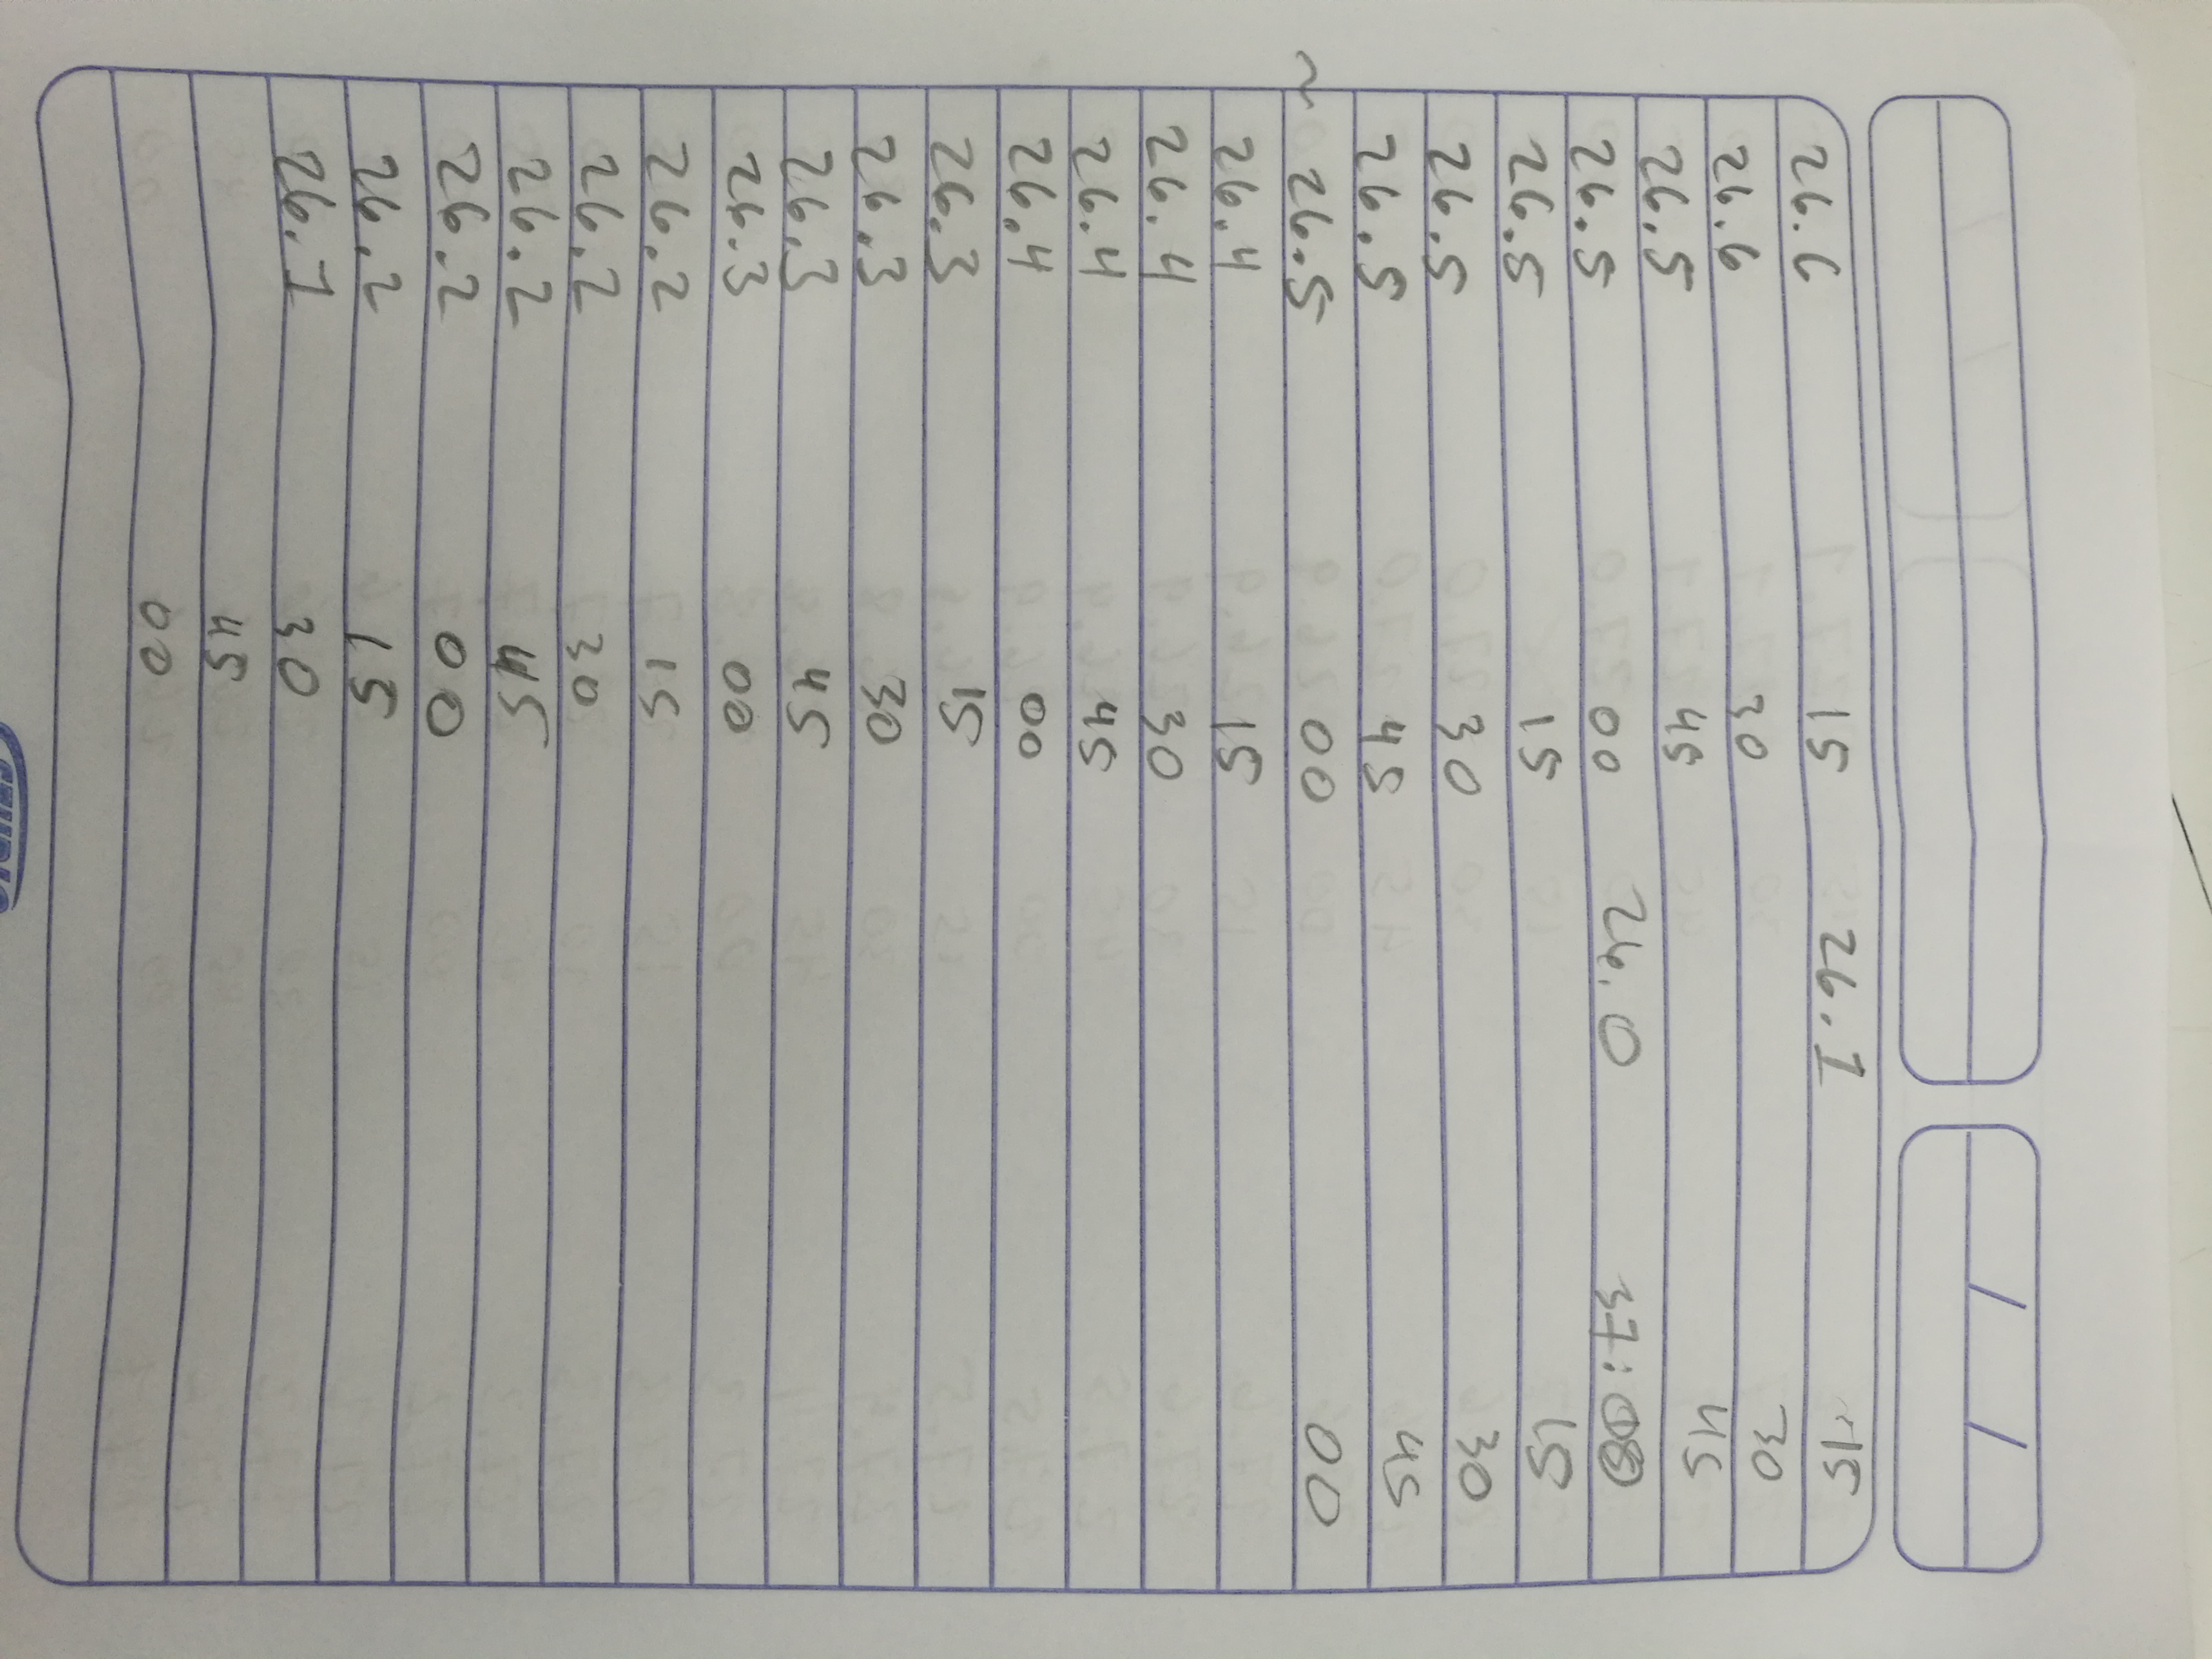 26.6 15 26.1 15
26.6 30 30
26.5 45 45
26.5 00 26.0 37:08
26.5 15 15
26.5 30 30
26.5 45 45
~ 26.5 00 00
26.4 15
26.4 30
26.4 45
26.4 00
26.3 15
26.3 30
26.3 45
26.3 00
26.2 15
26.2 30
26.2 45
26.2 00
26.2 15
26.1 30
45
00